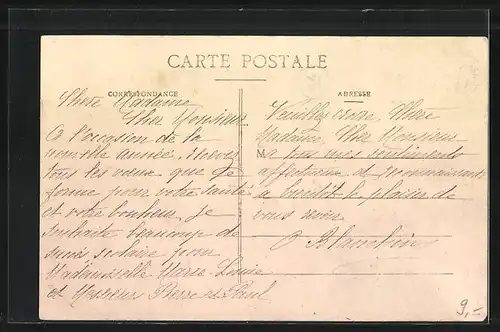 CARTE POSTALE
CORRESPONDANCE
Chère Madame
Cher Monsieur
A l'occasion de la
nouvelle année, recevez
tous les vœux que je
forme pour votre santé
et votre bonheur. Je
souhaite beaucoup de
succès scolaire pour
Mademoiselle Marie-Louise
et Messieurs Pierre et Paul
ADRESSE
Veuillez croire, Chère
Madame, Cher Monsieur
M
à tous mes sentiments
affectueux et reconnaissants
à bientôt le plaisir de
vous voir
9,-